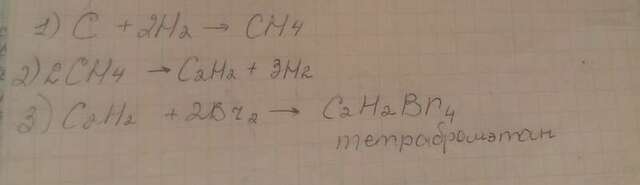 1) C + 2H2 → CH4
2) 2CH4 → C2H2 + 3H2
3) C2H2 + 2Br2 → C2H2Br4
тетрабромэтан